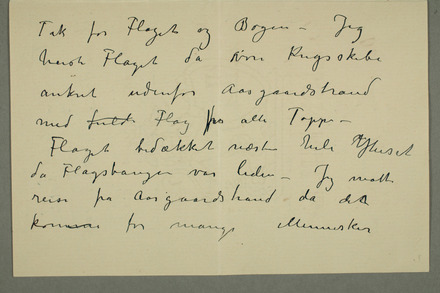 Tak for Flaget og Bogen – Jeg
heiste Flaget da vore Krigsskibe
ankret udenfor Aasgaardstrand
med fuldt Flag fra alle Toppe –
Flaget bedækket næsten hele Huset
da Flagstangen var liden – Jeg maatte
reise fra Aasgaardstrand da det
kommer for mange Mennesker